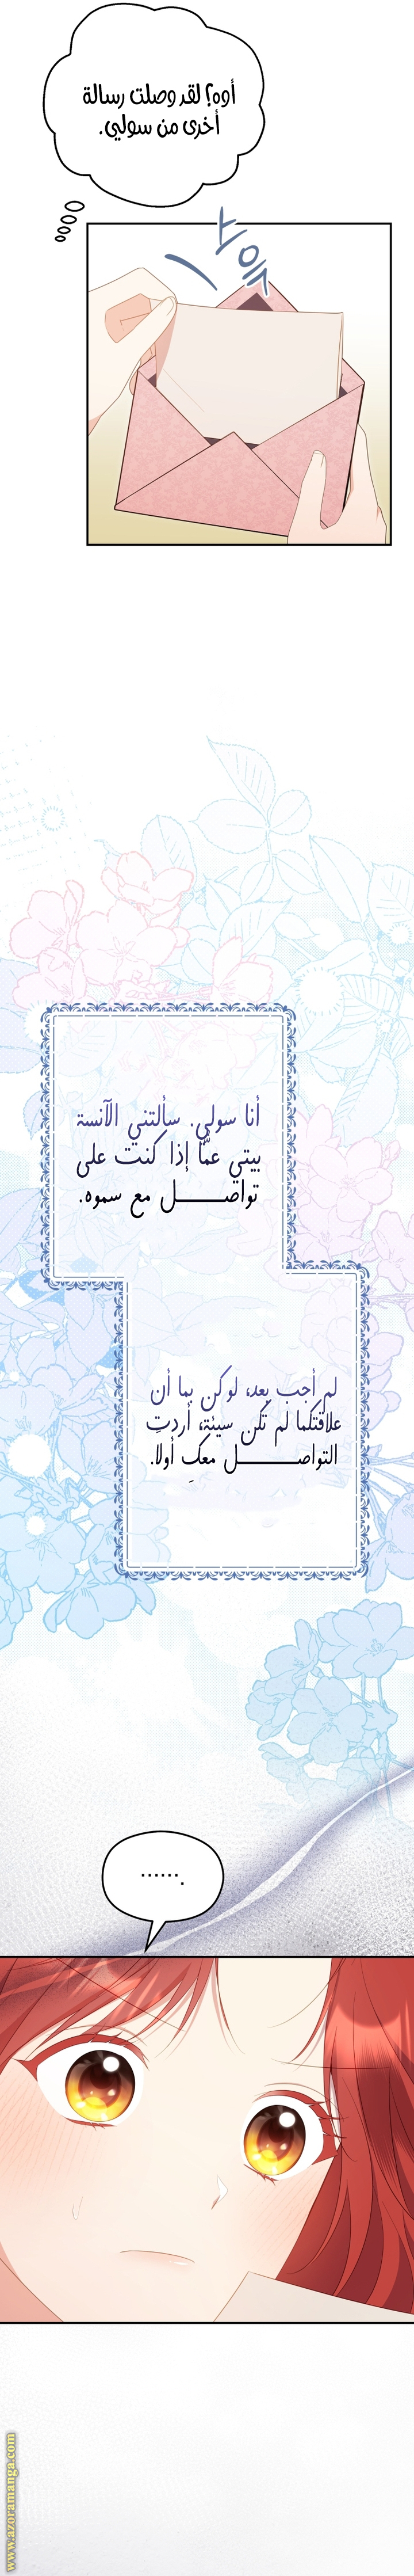 أوه؟ لقد وصلت رسالة
أخرى من سولي.
스윽
أنا سولي. سألتني الآنسة
بيتي عمّا إذا كنت على
تواصـــــــل مع سموه.
لم أجب بعد، لوكن بما أن
علاقتكما لم تكن سيئة، أردتِ
التواصـــــــل معكِ أولا.
.......
www.azoramanga.com